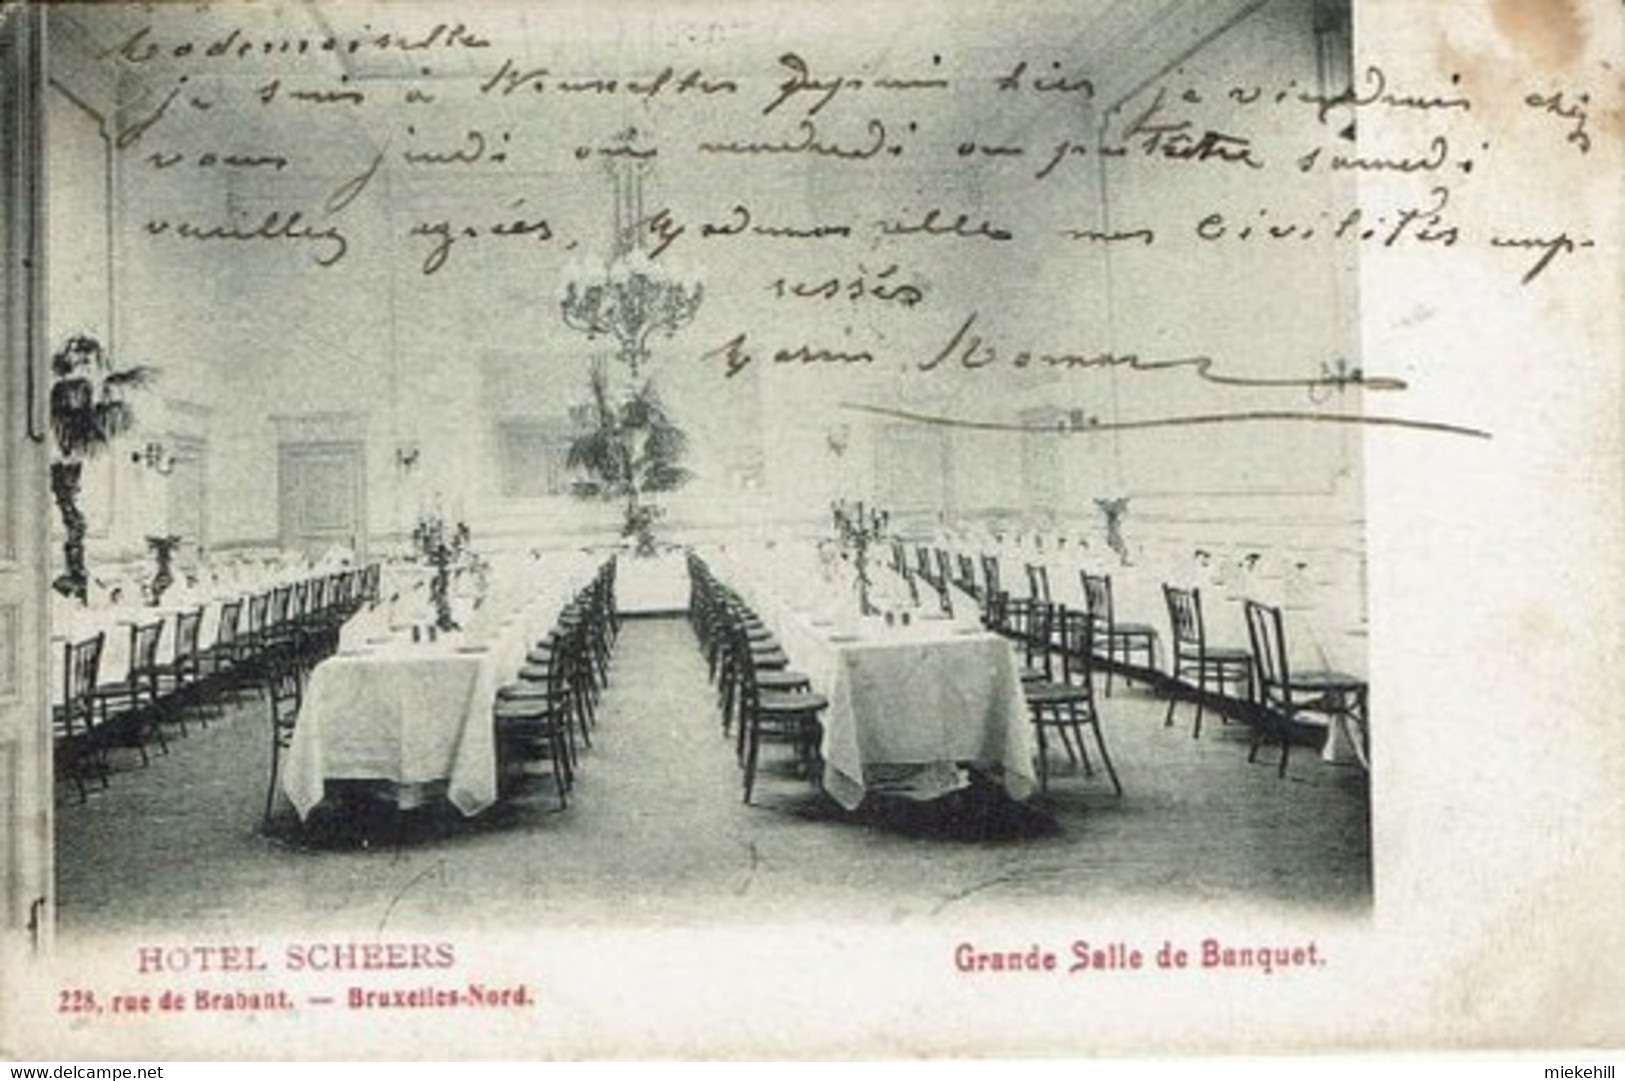 Mademoiselle
je suis à Bruxelles depuis hier je viendrais chez
vous jeudi ou vendredi ou peut être samedi
veuillez agrées, Mademoiselle mes civilités emp-
ressés
HOTEL SCHEERS
228, rue de Brabant. — Bruxelles-Nord.
Grande Salle de Banquet.
delcampe.net
miekehill